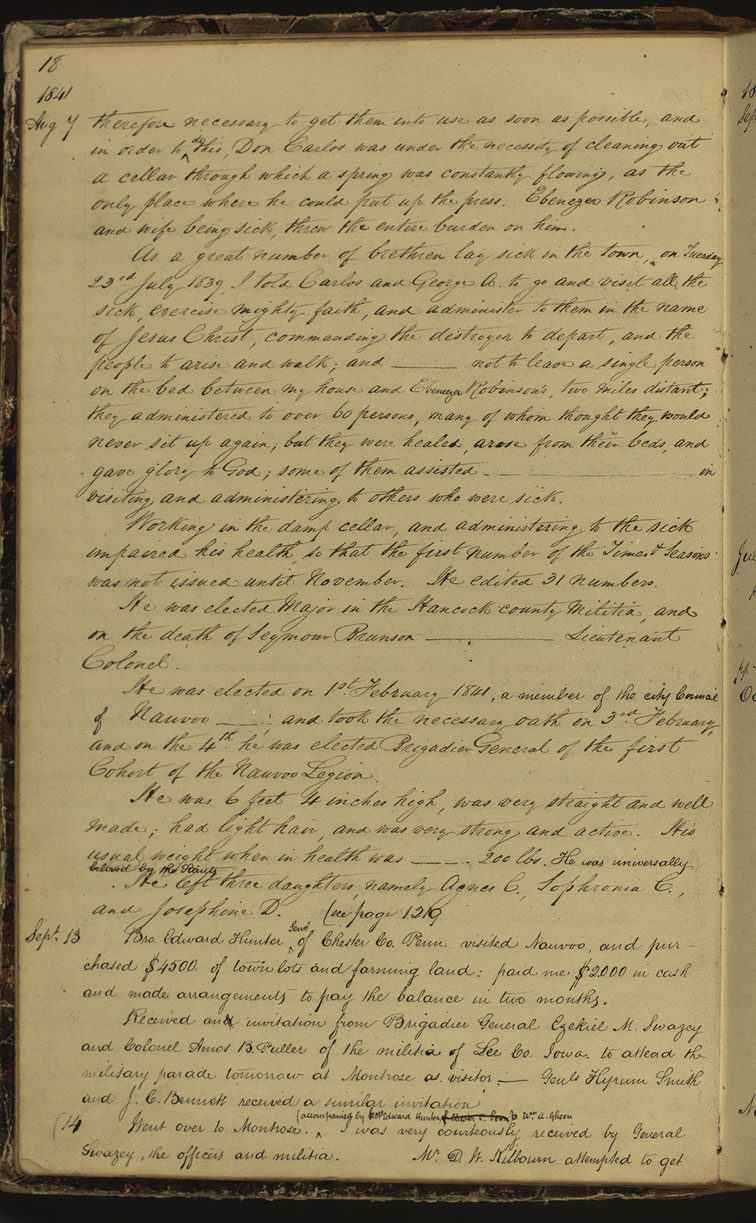 18
1841
Aug 7 therefore necessary to get them into use as soon as possible, and
in order to do this, Don Carlos was under the necessity of cleaning out
a cellar through which a spring was constantly flowing, as the
only place where he could put up the press. Ebenezer Robinson
and wife being sick, threw the entire burden on him.
As a great number of brethren lay sick in the town, on Tuesday
23rd July 1839, I told Carlos and George A. to go and visit all the
sick, exercise mighty faith, and administer to them in the name
of Jesus Christ, commanding the destroyer to depart, and the
people to arise and walk; and ——— not to leave a single person
on the bed between my house and Ebenezer Robinson's, two miles distant;
they administered to over 60 persons, many of whom thought they would
never sit up again; but they were healed, arose from their beds, and
gave glory to God; some of them assisted ——— in
visiting and administering to others who were sick.
Working in the damp cellar, and administering to the sick
impaired his health, so that the first number of the Times & Seasons
was not issued until November. He edited 31 numbers.
He was elected Major in the Hancock county Militia, and
on the death of Seymour Brunson ——— Lieutenant
Colonel.
He was elected on 1st February 1841, a member of the city Council
of Nauvoo ——; and took the necessary oath on 3rd February,
and on the 4th he was elected Brigadier General of the first
Cohort of the Nauvoo Legion.
He was 6 feet 4 inches high, was very straight and well
made; had light hair, and was very strong and active. His
usual weight when in health was ——— 200 lbs. He was universally
beloved by the Saints
He left three daughters, namely Agnes C., Sophronia C.,
and Josephine D. (see page 1219
Sept. 13 Bro. Edward Hunter of Chester Co. Penn. visited Nauvoo, and pur-
chased $4500. of town lots and farming land: paid me $2000 in cash
and made arrangements to pay the balance in two months.
Received an invitation from Brigadier General Ezekiel M. Swazey
and Colonel Amos B. Fuller of the militia of Lee Co. Iowa. to attend the
military parade tomorrow at Montrose as visitor. — Genls Hyrum Smith
and J. C. Bennett received a similar invitation
(accompanied by Edward Hunter of Chester C. Penn. & Wm A. Gheen
(14 Went over to Montrose. I was very courteously received by General
Swazey, the officers and militia. Mr. D. W. Kilbourn attempted to get